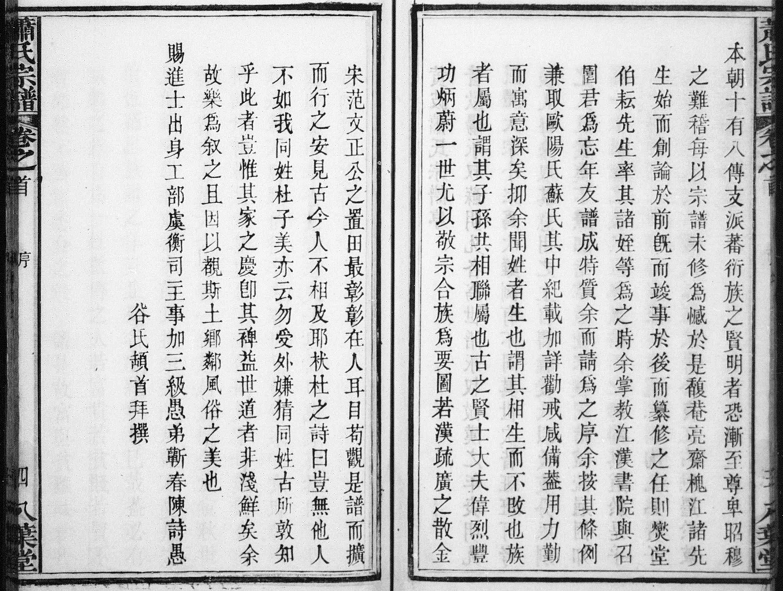 本朝十有八傳支派蕃衍族之賢明者恐漸至尊卑昭穆
之難稽每以宗譜未修爲憾於是馥菴亮齋槐江諸先
生始而創論於前旣而竣事於後而纂修之任則燮堂
伯耘先生率其諸姪等爲之時余掌教江漢書院與召
圃君爲忘年友譜成特質余而請爲之序余按其條例
兼取歐陽氏蘇氏其中紀載加詳勸戒咸備葢用力勤
而寓意深矣抑余聞姓者生也謂其相生而不敗也族
者屬也謂其子孫共相聯屬也古之賢士大夫偉烈豐
功炳蔚一世尤以敬宗合族爲要圖若漢疏廣之散金
宋范文正公之置田最彰彰在人耳目茍觀是譜而擴
而行之安見古今人不相及耶杕杜之詩曰豈無他人
不如我同姓杜子美亦云勿受外嫌猜同姓古所敦知
乎此者豈惟其家之慶卽其裨益世道者非淺鮮矣余
故樂爲叙之且因以觀斯土鄉鄰風俗之美也
賜進士出身工部虞衡司主事加三級愚弟蘄春陳詩愚
谷氏頓首拜撰
蕭氏宗譜 卷之首 序 四 八葉堂